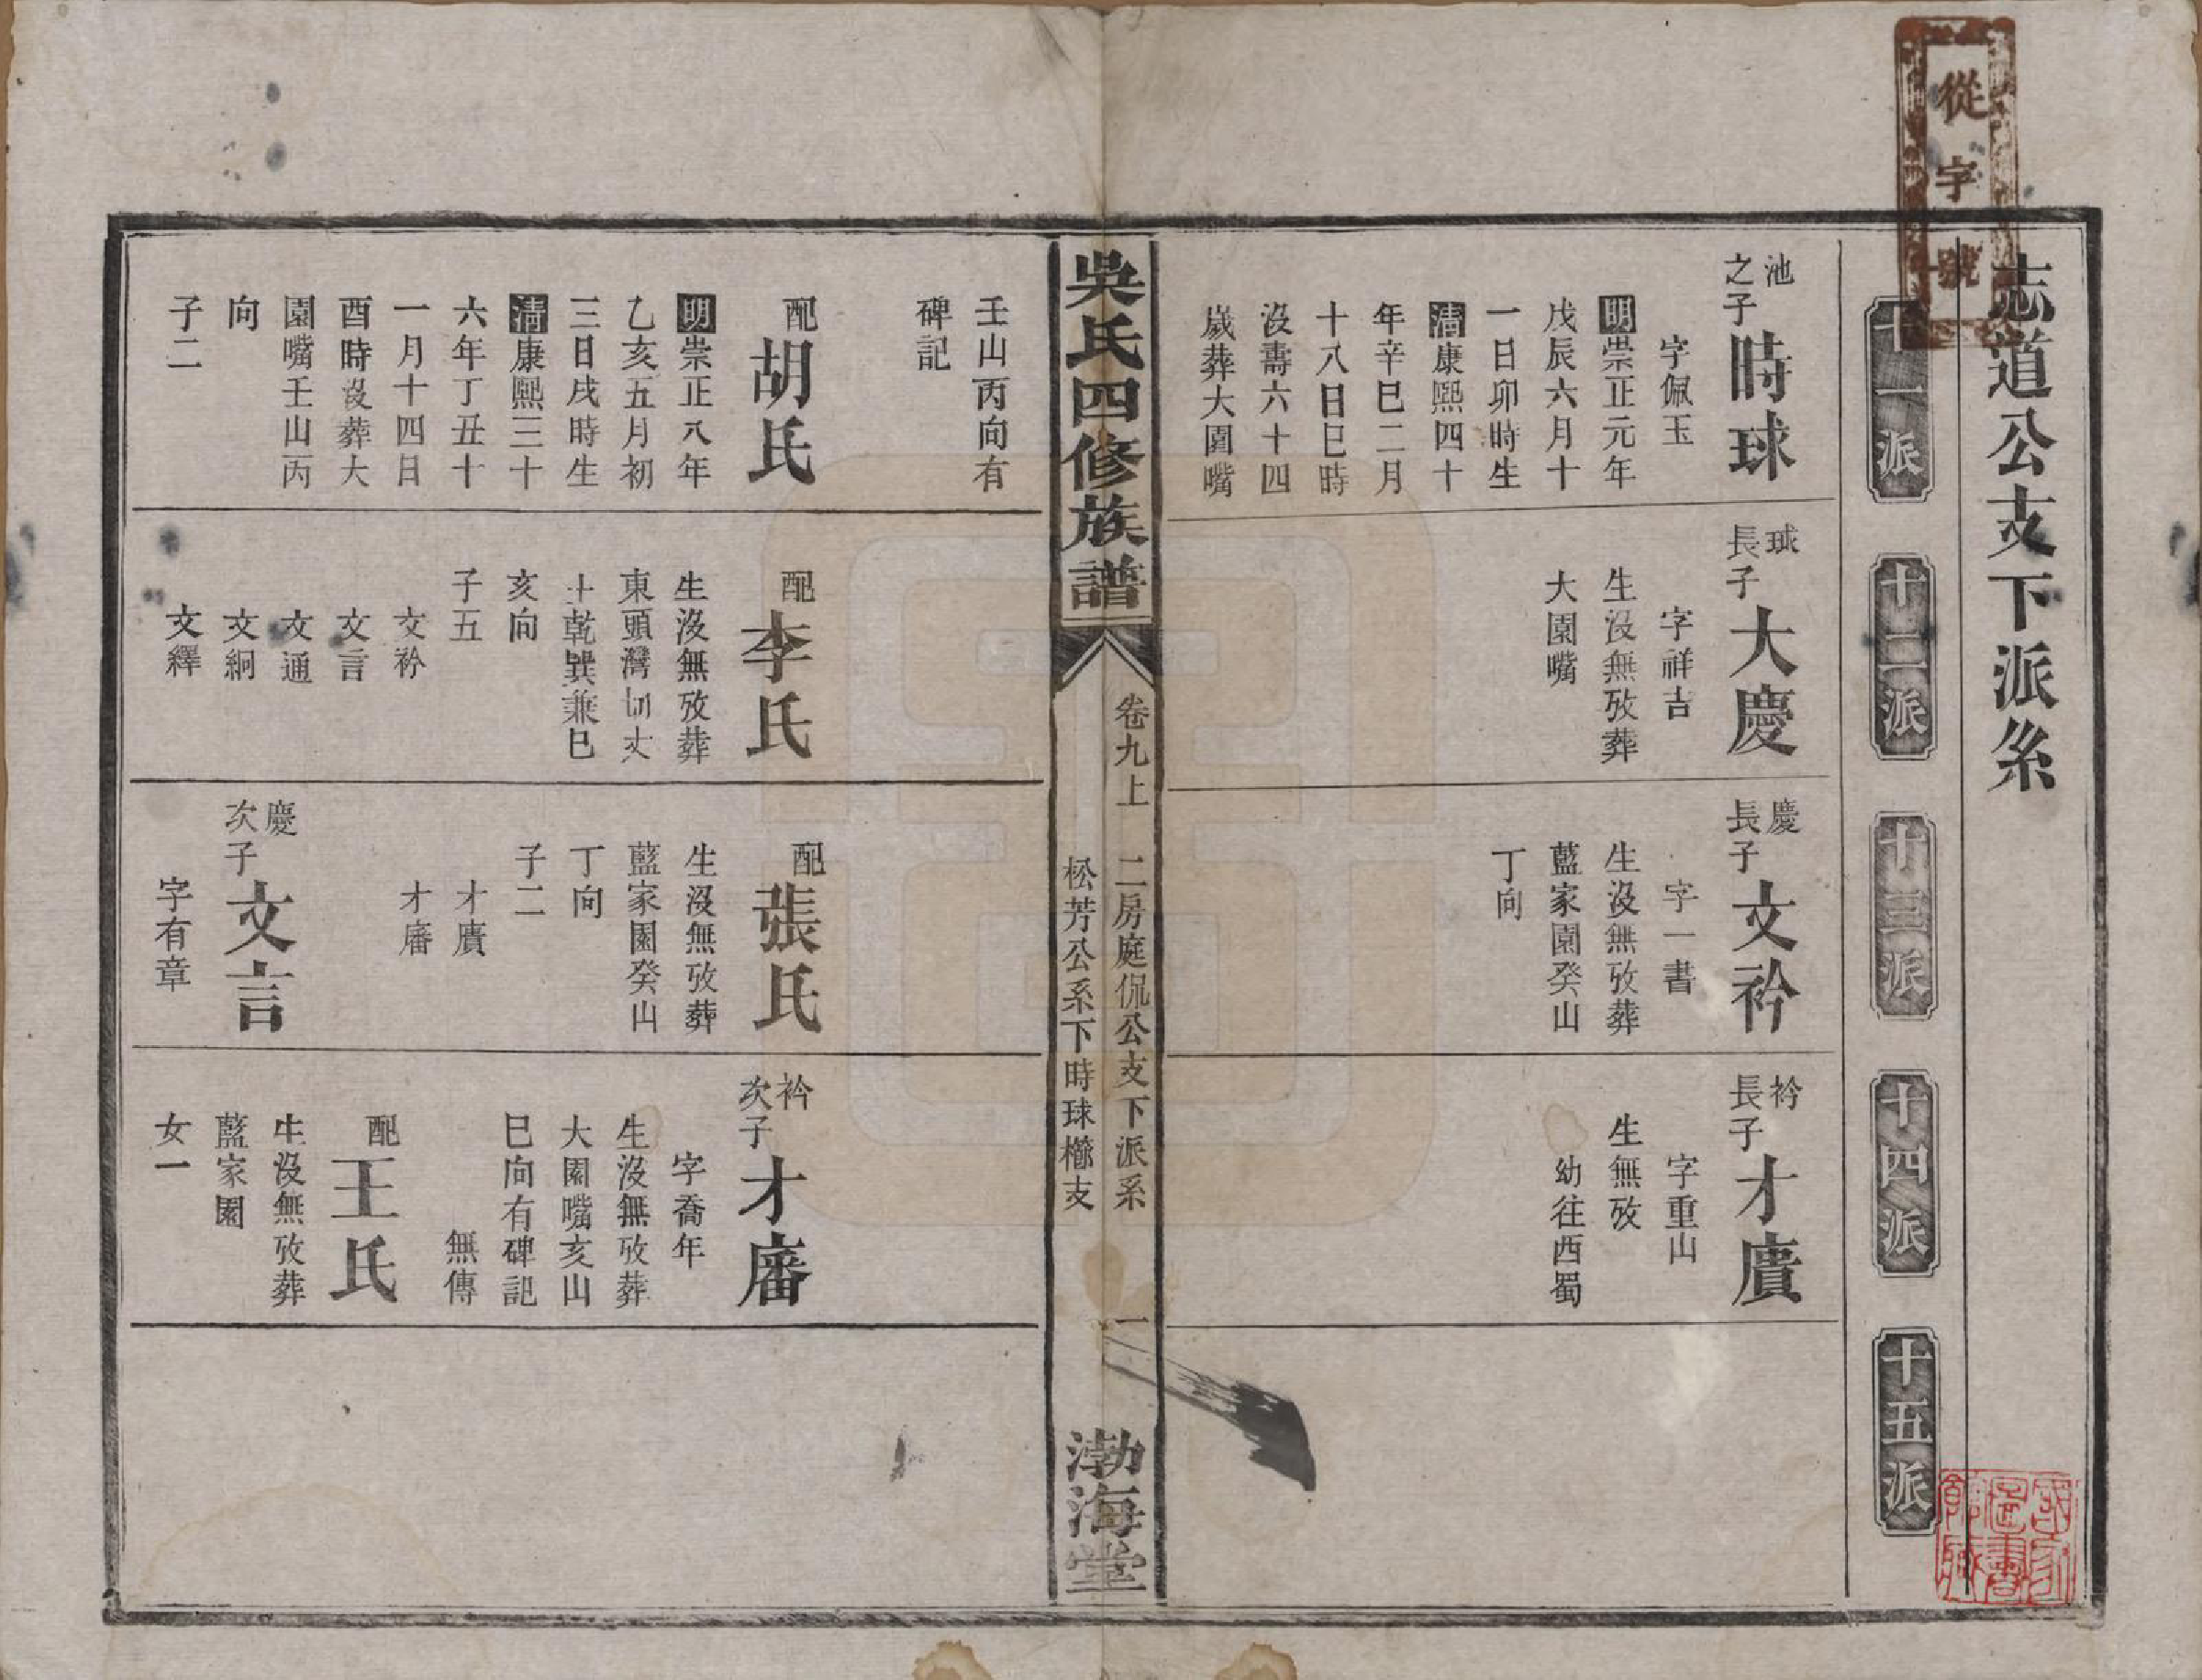 從字號
志道公支下派系
十一派
十二派
十三派
十四派
十五派
池之子
時球
字佩玉
明崇正元年
戊辰六月十
一日卯時生
清康熙四十
年辛巳二月
十八日巳時
沒壽六十四
歲葬大園嘴
壬山丙向有
碑記
配
胡氏
明崇正八年
乙亥五月初
三日戌時生
清康熙三十
六年丁丑十
一月十四日
酉時沒葬大
園嘴壬山丙
向
子二
球長子
大慶
字祥吉
生沒無攷葬
大園嘴
配
李氏
生沒無攷葬
東頭灣切丈
土乾巽兼巳
亥向
子五
文衿
文言
文通
文絅
文繹
慶長子
文衿
字一書
生沒無攷葬
藍家園癸山
丁向
配
張氏
生沒無攷葬
藍家園癸山
丁向
子二
才賡
才㢖
慶次子
文言
字有章
衿長子
才賡
字重山
生無攷
幼往西蜀
衿次子
字喬年
生沒無攷葬
大園嘴亥山
巳向有碑記
無傳
配
王氏
生沒無攷葬
藍家園
女一
吳氏四修族譜
卷九上
二房庭侃公支下派系
松芳公系下時球櫤支
一
渤海堂
國家圖書館藏